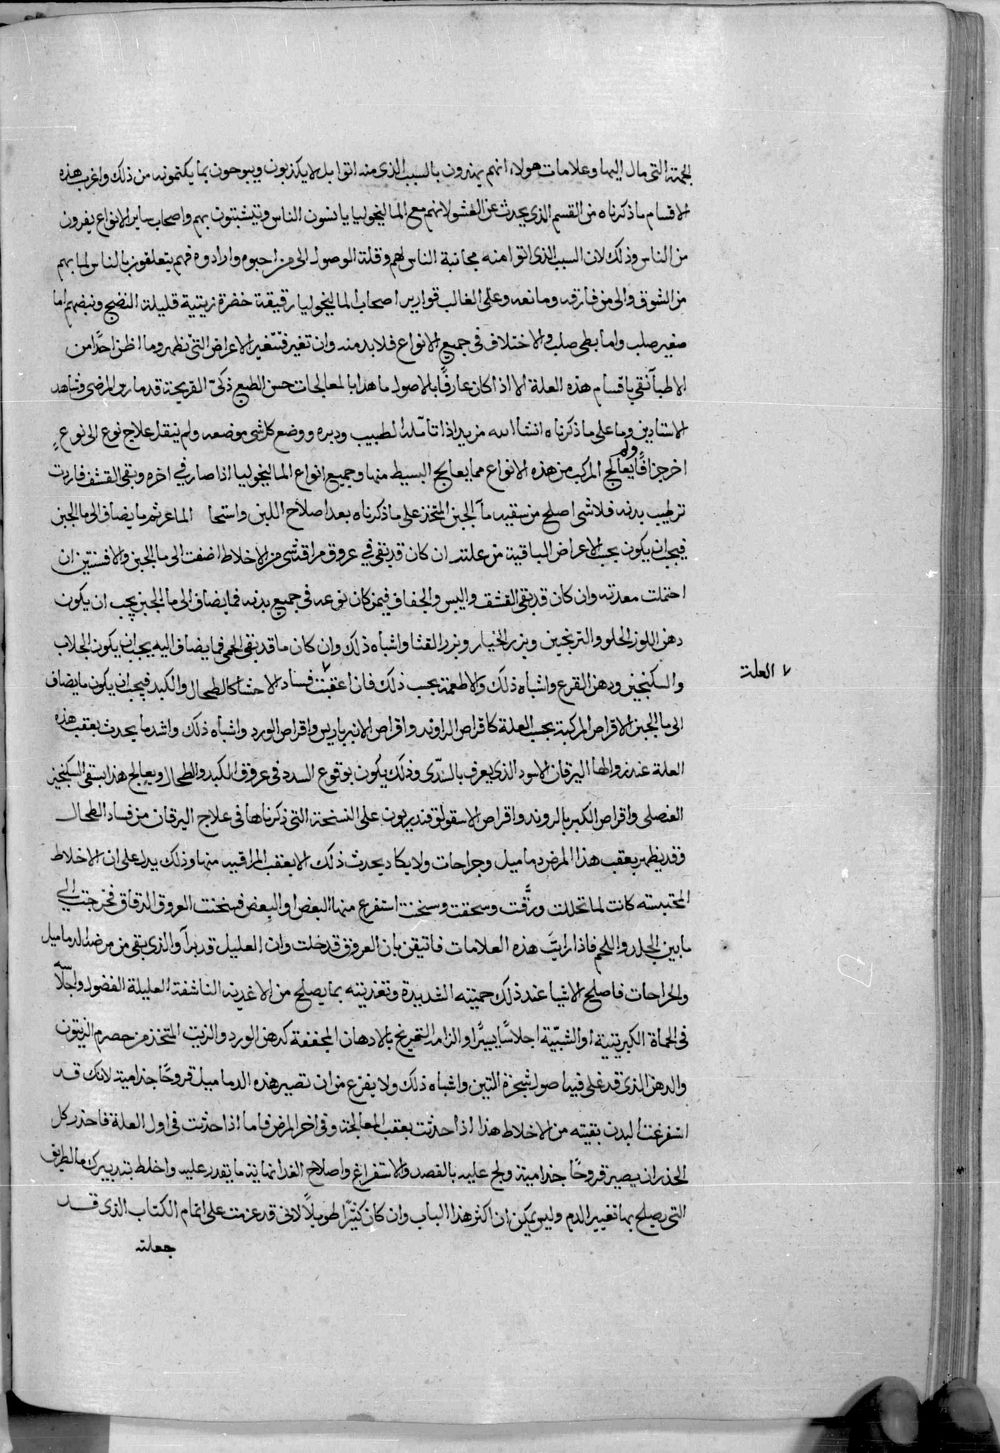 الجهة التى مال اليها وعلامات هولاء انهم يهذرون بالسبب الذى منه اتوا بل لا يكذبون ويبوحون بما يكتمونه من ذلك واغرب هذه
الاقسام ما ذكرناه من القسم الذى يحدث عن العشق لانهم مع الماليخوليا يانسون الناس ويتشبثون بهم واصحاب ساير الانواع يفرون
من الناس وذلك لان السبب الذى اتوا منه مجانبة الناس لهم وقلة الوصول الى من احبوه وارادوه فهم يتعلقون بالناس لما بهم
من الشوق والى من فارقه ومانعه وعلى الغالب قوارير اصحاب الماليخوليا رقيقة خضرة زيتية قليلة النضج ونبضهم اما
صغير صلب واما بطى صلب والاختلاف فى جميع الانواع فلا بد منه وان تغير فتغير الاعراض التى يظهر وما اظن احدًا من
الاطبآ نقى باقسام هذه العلة الا اذا كان عارفًا بالاصول ماهرا بالمعالجات حسن الطبع ذكىّ القريحة قد مارس المرضى وشاهد
الاستادين وما على ما ذكرناه انشا الله مزيد اذا تامّله الطبيب ودبره ووضع كل شى موضعه ولم ينقل علاج نوع الى نوع
اخر جزافًا ولم يعالج المركب من هذه الانواع مما يعالج البسيط منها وجميع انواع الماليخوليا اذا صار فى اخره وبقى القشف فاردت
ترطيب بدنه فلا شى اصلح من سقيه مآ الجبن المتخذ على ما ذكرناه بعد اصلاح اللبن واستحا الماعز ثم ما يضاف الى ما الجبن
فيجب ان يكون بحسب الاعراض الباقية من علته ان كان قد بقى فى عروق مراقه شى من الاخلاط اضفت الى ما الجبن والافسنتين ان
احتملت معدته وان كان قد بقى القشف واليبس والجفاف فيمن كان نوعه فى جميع بدنه فما يضاف الى ما الجبن يجب ان يكون
دهن اللوز الحلو والترنجبين وبزر الخيار وبزر القثا واشباه ذلك وان كان ما قد بقى الحمى فما يضاف اليه يجب ان يكون الجلاب
والسكنجبين ودهن القرع واشباه ذلك والاطعمة بحسب ذلك فان اعقبت فساد الاحشا كالطحال والكبد فيجب ان يكون ما يضاف
٧ العلة
الى ما الجبن الاقراص المركبة بحسب العلة كاقراص الراوند واقراص الانبرباريس واقراص الورد واشباه ذلك واشد ما يحدث بعقب هذه
العلة عند زوالها اليرقان الاسود الذى يعرف بالسدّى وذلك يكون بوقوع السدد فى عروق الكبد والطحال ويعالج هذا بسقى السكنجبين
العنصلى واقراص الكبر بالروند واقراص الاسقولوقندريون على النسخة التى ذكرناها فى علاج اليرقان من فساد الطحال
وقد يظهر بعقب هذا المرض دماميل وجراحات ولا يكاد يحدث ذلك الا بعقب المراقية منها وذلك يدل على ان الاخلاط
المحتبسة كانت لما تحللت ورقّت وسحقت وسخنت استفرغ منها البعض او البعض فسخنت العروق الدقاق فخرجت الى
ما بين الجلد واللحم فاذا رايتَ هذه العلامات فاتيقن بان العروق قد خلت وان العليل قد برأ والذى بقى من مرضه الدماميل
والجراحات فاصلح الاشيا عند ذلك حميته الشديدة وتغذيته بما يصلح من الاغذية الناشفة العليلة الفضول واجلاسه
فى الحمأة الكبريتية او الشبّية اجلاسًا يسيرًا والزامه التمريخ بالادهان المجففة كدهن الورد والزيت المتخذ من حصرم الزيتون
والدهن الذى قد غلى فيها اصول شجرة التين واشباه ذلك ولا يفزع من ان تصير هذه الدماميل قروحًا جذامية لانك قد
استفرغت البدن بقيته من الاخلاط هذا اذا حدثت بعقب المعالجة وفى اخر المرض فاما اذا حدثت فى اول العلة فاحذر كل
الحذر ان يصير قروحًا جذامية ولج عليه بالفصد والاستفراغ واصلاح الغذا نهاية ما يقدر عليه واخلط بتدبيرك ما الطريق
التى يصلح بها تغيير الدم وليس يمكن ان اكثر هذا الباب وان كان كثيرًا طويلًا لانى قد عزمت على اتمام الكتاب الذى قد
جعلته